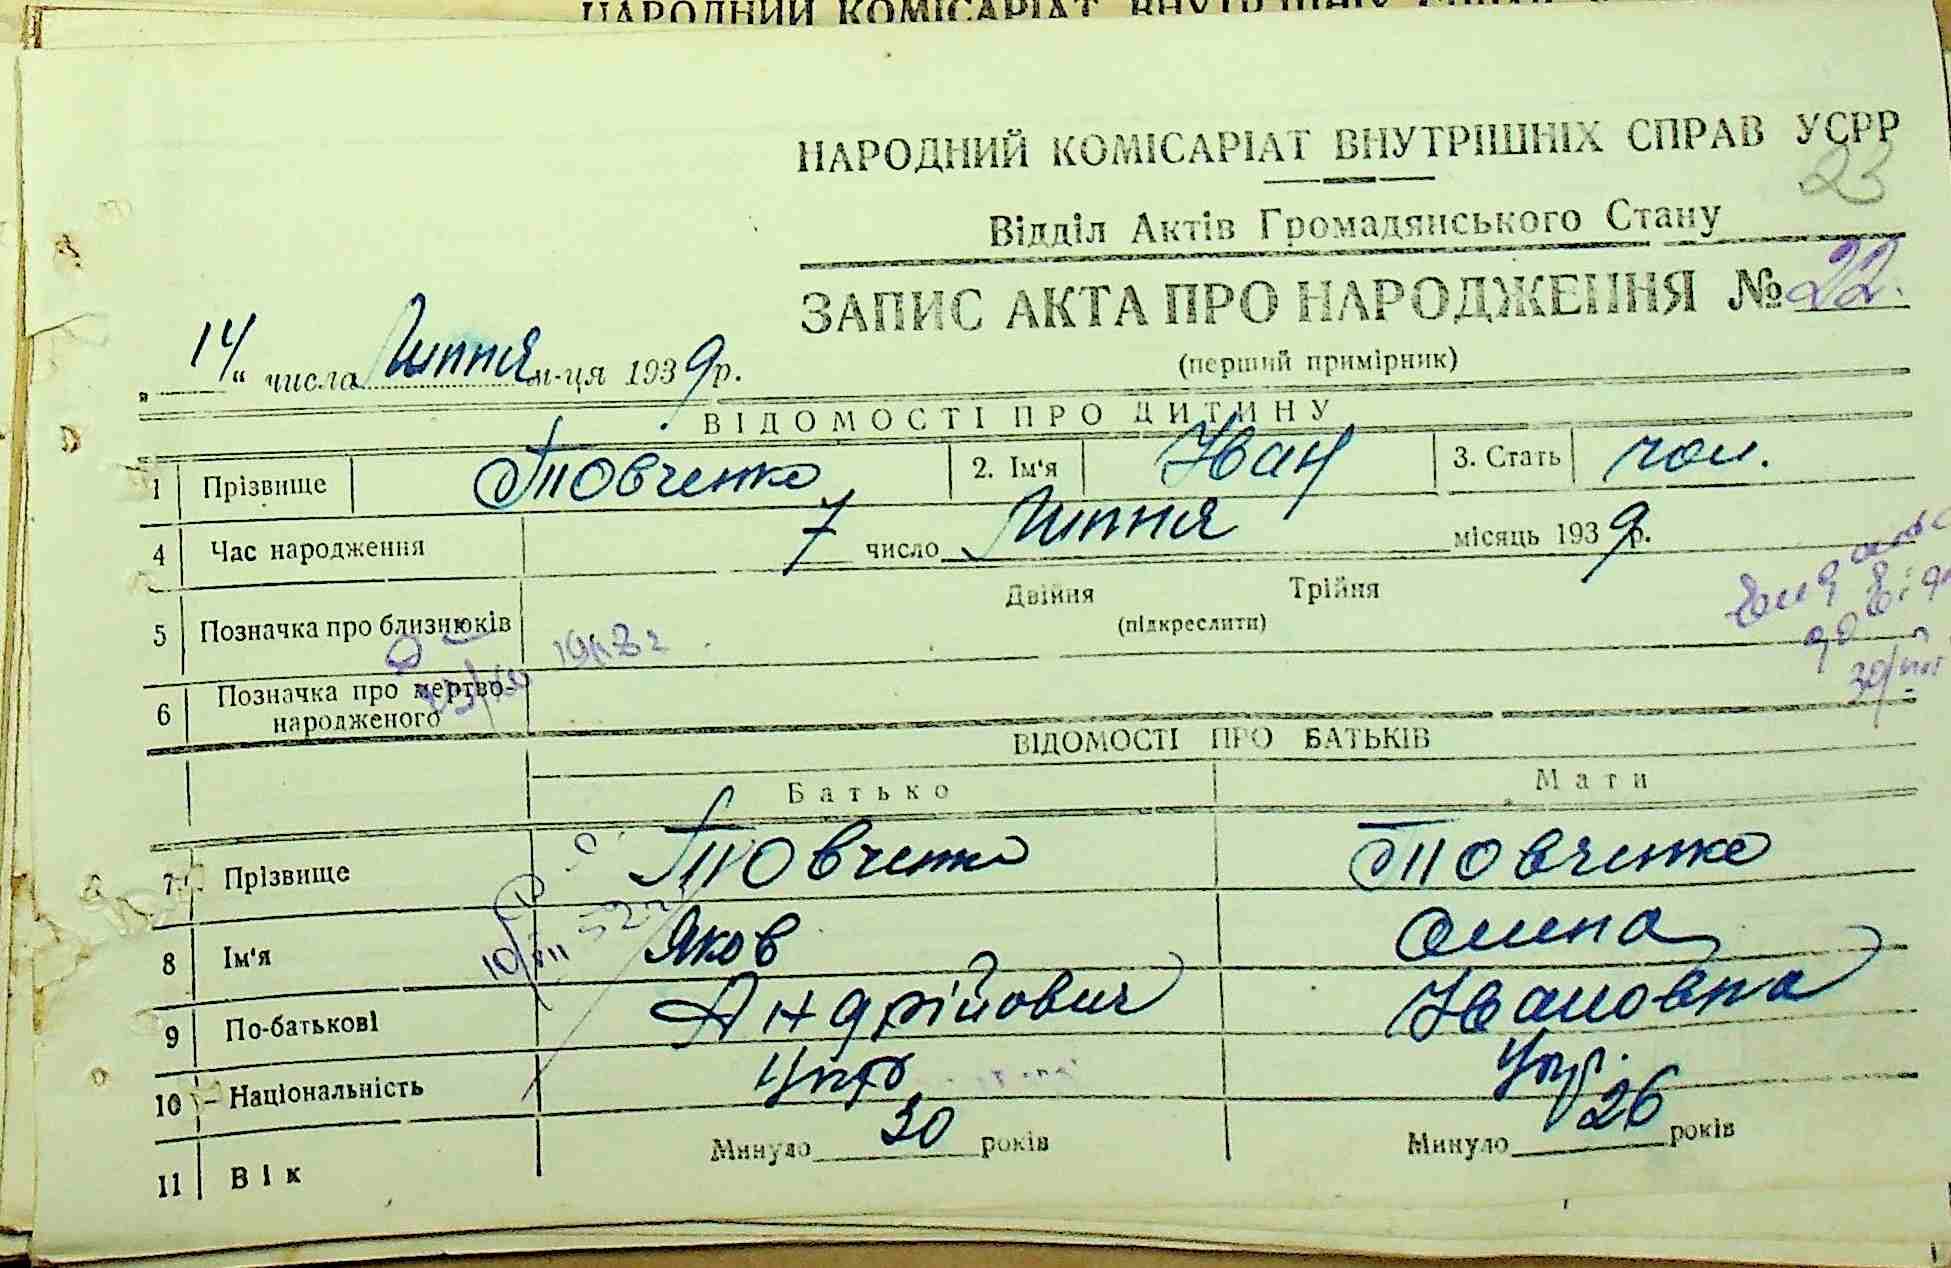 НАРОДНИЙ КОМІСАРІАТ ВНУТРІШНІХ СПРАВ
НАРОДНИЙ КОМІСАРІАТ ВНУТРІШНІХ СПРАВ УСРР
23
Відділ Актів Громадянського Стану
ЗАПИС АКТА ПРО НАРОДЖЕННЯ № 22.
(перший примірник)
„14“ числа Липня м-ця 1939 р.
ВІДОМОСТІ ПРО ДИТИНУ
1 Прізвище Товченко 2. Ім'я Іван 3. Стать чол.
4 Час народження 7 число Липня місяць 1939 р.
5 Позначка про близнюків Двійня Трійня
(підкреслити)
6 Позначка про мертво-
народженого
ВІДОМОСТІ ПРО БАТЬКІВ
Батько Мати
7 Прізвище Товченко Товченко
8 Ім'я Яков Олина
9 По-батькові Андрійович Івановна
10 Національність Укр Укр.
11 Вік Минуло 30 років Минуло 26 років